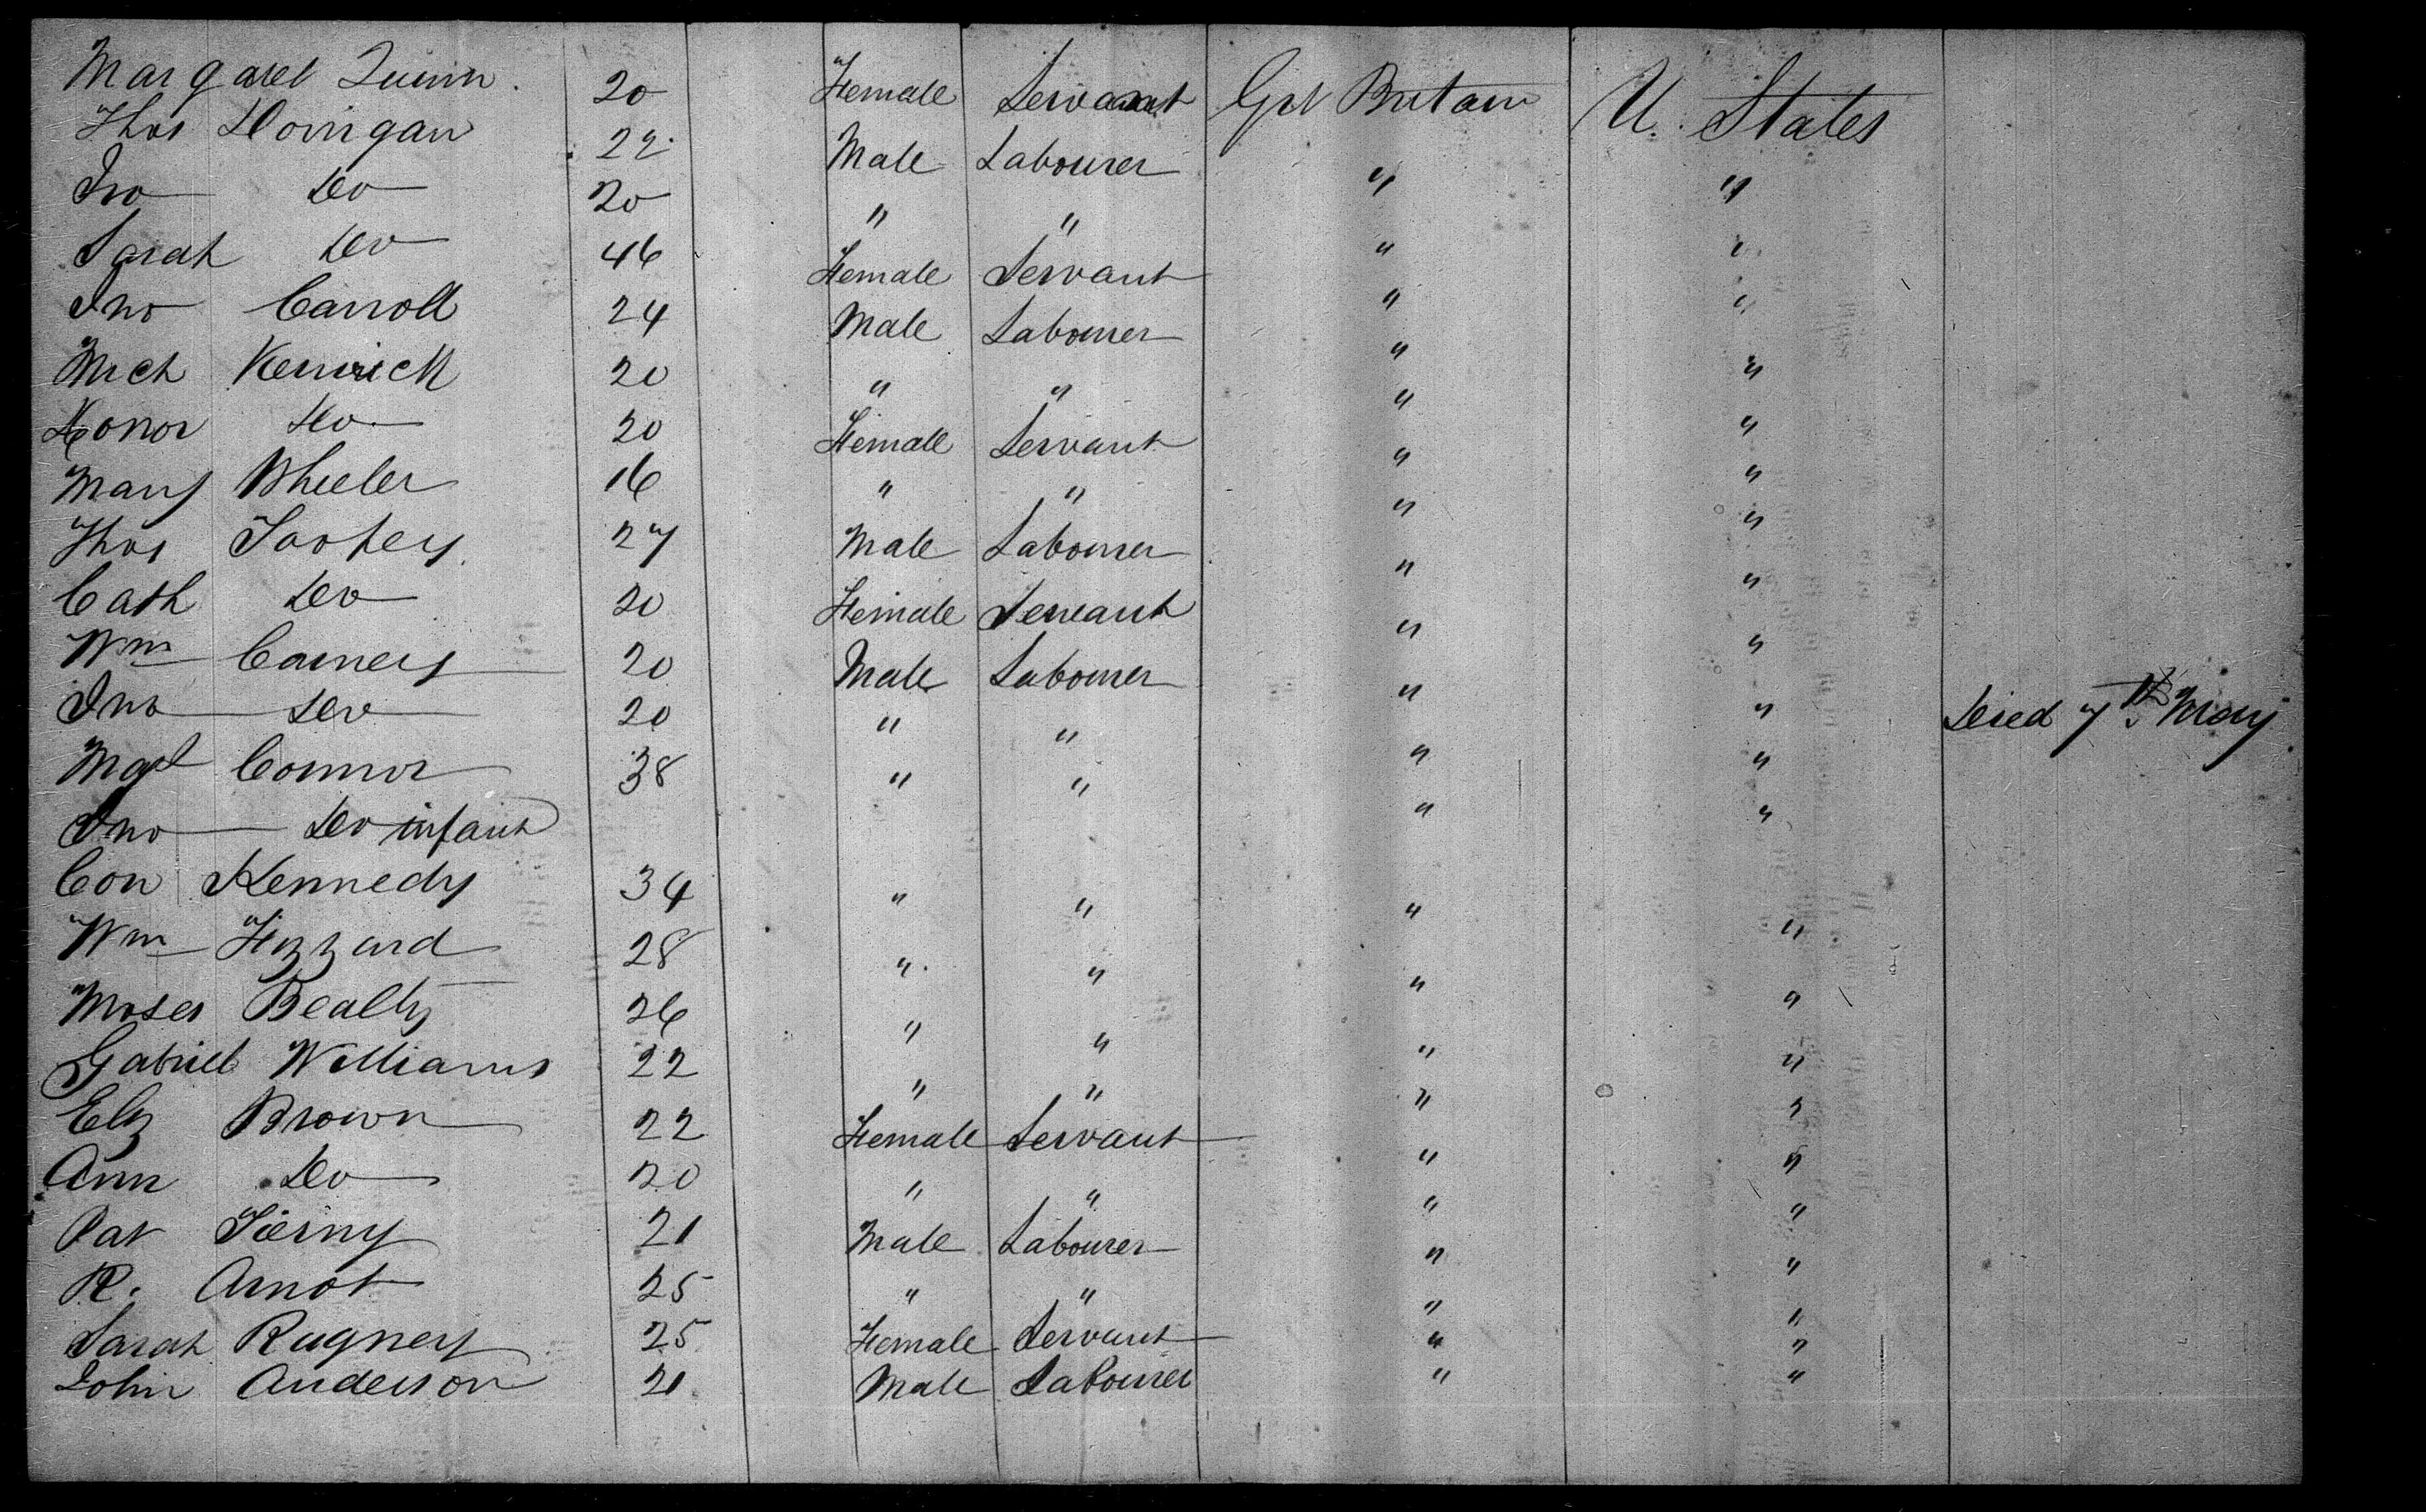 Margaret Quinn. 20 Female Servant Grt Britain U. States
Thos Horrigan 22 Male Labourer " "
Jno Do 20 " " " "
Sarah Do 46 Female Servant " "
Jno Carroll 24 Male Labourer " "
Mich Kenrick 20 " " " "
Honor Do 20 Female Servant " "
Mary Wheeler 16 " " " "
Thos Toohey. 27 Male Labourer " "
Cath Do 20 Female Servant " "
Wm Carney 20 Male Labourer " "
Jno Do 20 " " " " Died 7th May
Connor 38 " " " "
Jno Do infant
Con Kennedy 34 " " " "
Wm Hizzard 28 " " " "
Moses Beatty 26 " " " "
Gabriel Williams 22 " " " "
Elz Brown 22 Female Servant " "
Ann Do 20 " " " "
Pat Tierny 21 Male Labourer " "
R. Arnot 25 " " " "
Sarah Rugney 25 Female Servant " "
John Anderson 21 Male Labourer " "